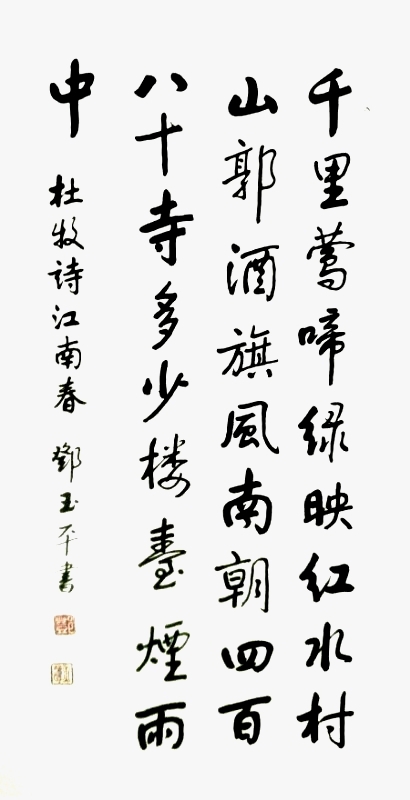 千里鶯啼绿映红水村
山郭酒旗風南朝四百
八十寺多少楼臺煙雨
中
杜牧詩江南春 鄧玉平書